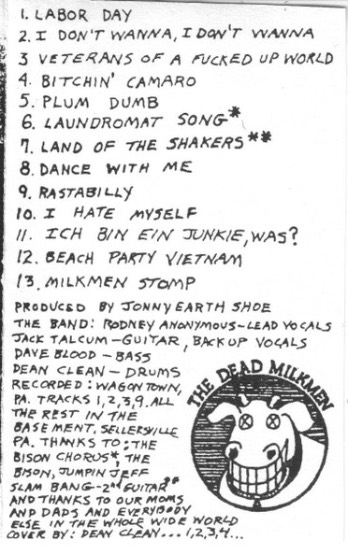 1. LABOR DAY
2. I DON'T WANNA, I DON'T WANNA
3 VETERANS OF A FUCKED UP WORLD
4. BITCHIN' CAMARO
5. PLUM DUMB
6. LAUNDROMAT SONG*
7. LAND OF THE SHAKERS**
8. DANCE WITH ME
9. RASTABILLY
10. I HATE MYSELF
11. ICH BIN EIN JUNKIE, WAS?
12. BEACH PARTY VIETNAM
13. MILKMEN STOMP
PRODUCED BY JONNY EARTH SHOE
THE BAND: RODNEY ANONYMOUS-LEAD VOCALS
JACK TALCUM-GUITAR, BACKUP VOCALS
DAVE BLOOD - BASS
DEAN CLEAN - DRUMS
RECORDED: WAGONTOWN,
PA. TRACKS 1,2,3,9. ALL
THE REST IN THE
BASEMENT, SELLERSVILLE
PA. THANKS TO: THE
BISON CHORUS*, THE
BISON, JUMPIN JEFF
SLAM BANG-2ND GUITAR**
AND THANKS TO OUR MOMS
AND DADS AND EVERYBODY
ELSE IN THE WHOLE WIDE WORLD
COVER BY: DEAN CLEAN...1,2,3,4...
THE DEAD MILKMEN